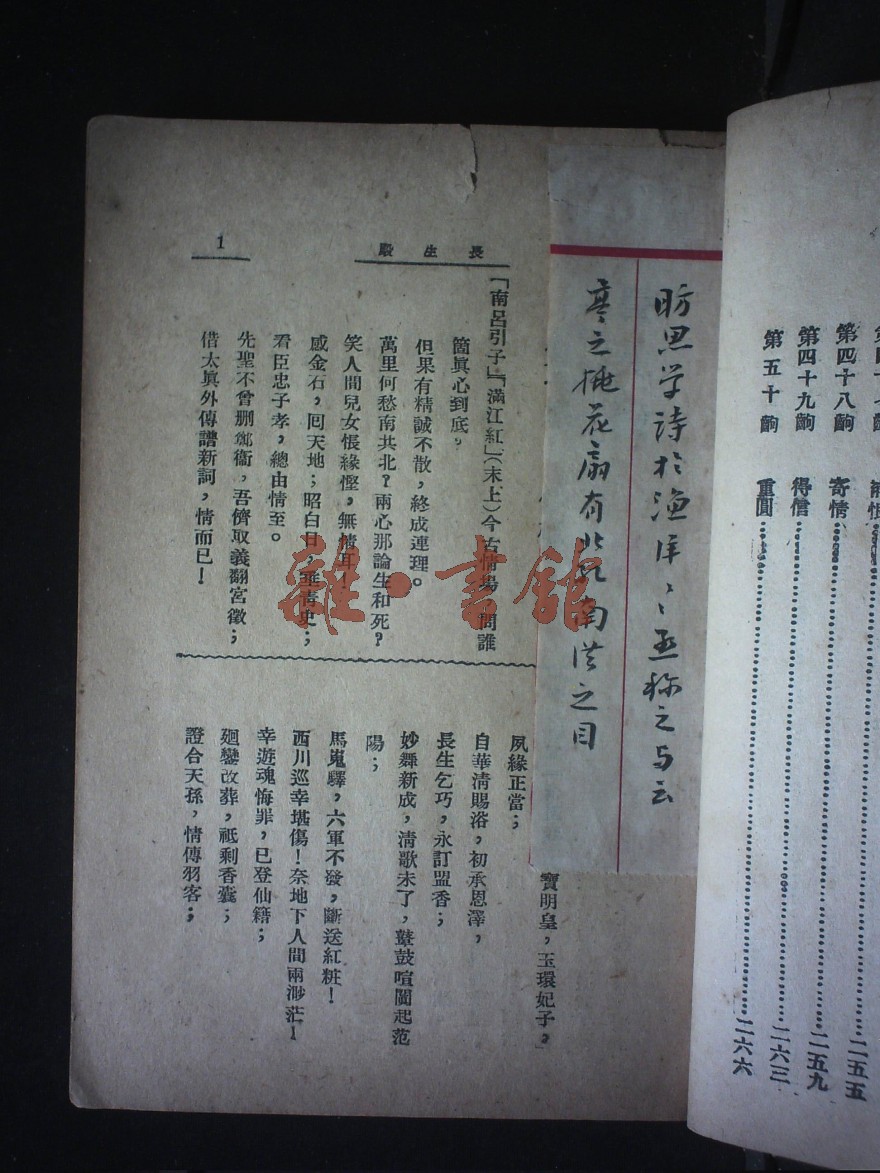 第四十八齣 寄情……二五五
第四十九齣 得信……二五九
第五十齣 重圓……二六三
二六六
昉思学诗於渔洋〻亟称之与云
亭之桃花扇有北孔南洪之目
長生殿
1
「南呂引子」「滿江紅」(末上)今古情場 問誰
箇眞心到底。
但果有精誠不散，終成連理。
萬里何愁南共北？兩心那論生和死？
笑人間兒女悵緣慳，無情耳！
感金石，囘天地；昭白日，垂青史；
看臣忠子孝，總由情至。
先聖不曾删鄭衞，吾儕取義翻宮徵；
借太眞外傳譜新詞，情而已！
寶明皇，玉環妃子，
夙緣正當；
自華淸賜浴，初承恩澤，
長生乞巧，永訂盟香；
妙舞新成，淸歌未了，鼙鼓喧闐起范
陽；
馬嵬驛，六軍不發，斷送紅粧！
西川巡幸堪傷！奈地下人間兩渺茫！
幸遊魂悔罪，已登仙籍；
廻鑾改葬，祗剩香囊；
證合天孫，情傳羽客；
雜·書館